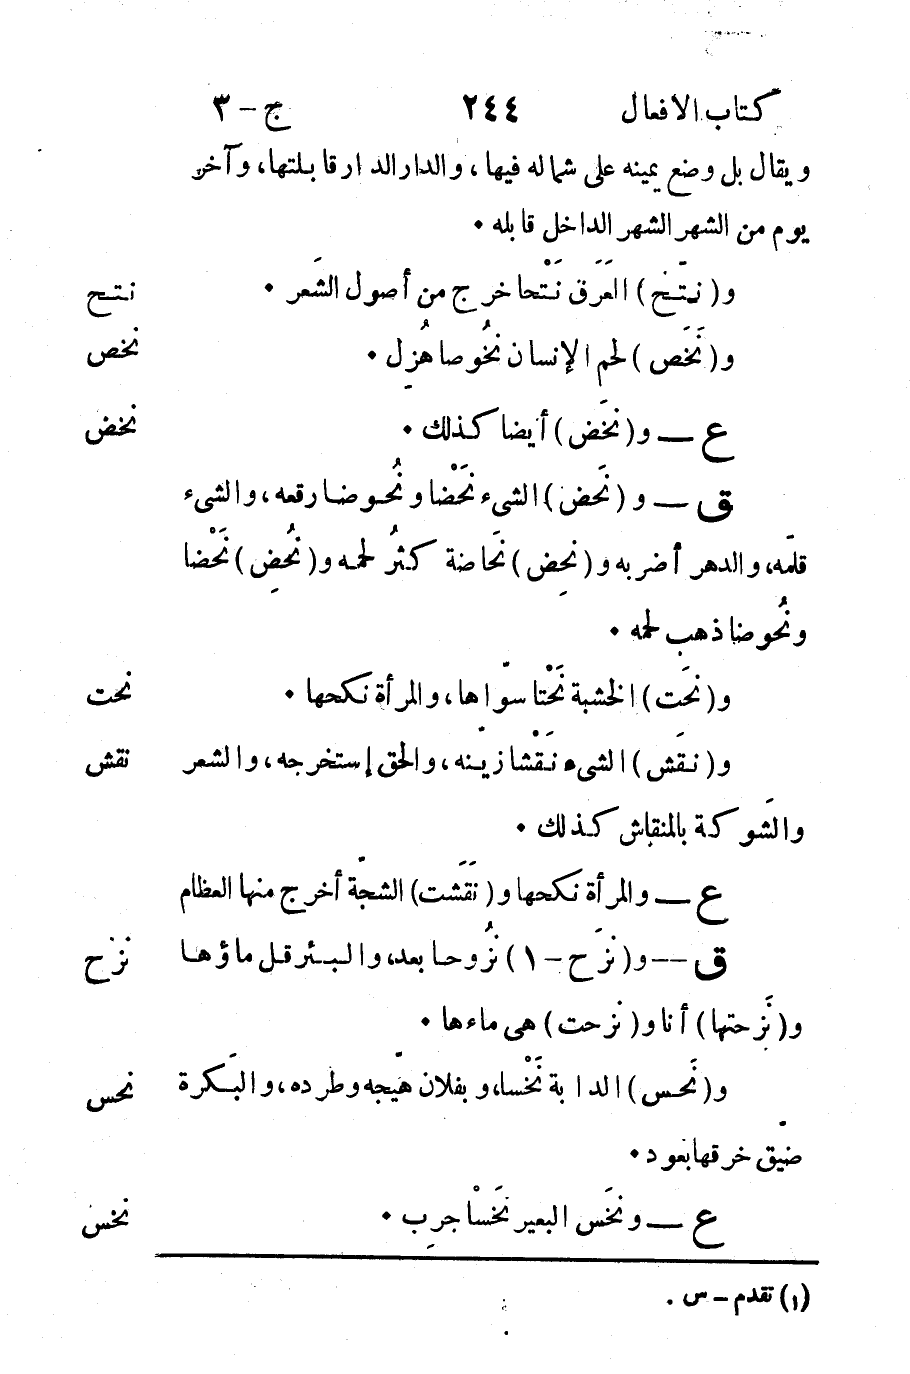 كتاب الافعال ٢٤٤ ج - ٣
ويقال بل وضع يمينه على شماله فيها، والدار الدار قابلتها، وآخر
يوم من الشهر الشهر الداخل قابله ٠
و(نتَح) العَرَق نَتْحا خرج من أصول الشَعر ٠ نتح
و(نَخَص) لحم الإنسان نُخُوصا هُزِل ٠ نخص
ع — و(نخَض) أيضا كذلك ٠ نخض
ق — و(نَحَض) الشىء نَحْضا ونُحُوضا رقعه، والشىء
قلّمه، والدهر أضر به و(نحِض) نَحَاضة كثُر لحمه و(نُحِض) نَحْضا
ونُحُوضا ذهب لحمه ٠
و(نحَت) الخشبة نَحْتا سوّاها، والمرأة نكحها ٠ نحت
و(نقَش) الشىء نَقْشا زيّنه، والحق إستخرجه، والشعر نقش
والشَوكة بالمنقاش كذلك ٠
ع — والمرأة نكحها و(نَقَشت) الشجّة أخرج منها العظام
ق — و(نزَح - ١) نُزُوحا بعد، والبئر قل ماؤها نزح
و(نَزحتها) أنا و(نزحت) هى ماءها ٠
و(نَحَس) الدابة نَخْسا، وبفلان هيّجه وطرده، والبَكرة نحس
ضيّق خرقها بعود ٠
ع — ونخَس البعير نَخَسْا جرِب ٠ نخس
(١) تقدم - س .